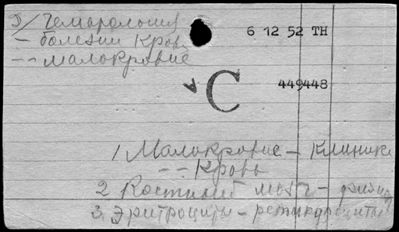 Э/Гематология
- болезни Кров
- - малокровие
6 12 52 ТН
C
449448
1 Малокровие - Клиника
- - Кровь
2 Костный мозг - физиол
3. Эритроциты - ретикулоциты